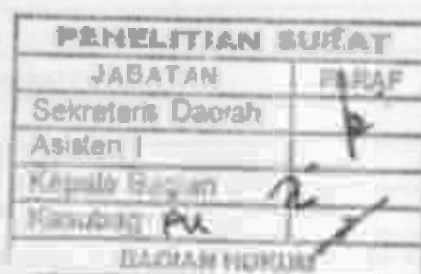 PENELITIAN SURAT
JABATAN PARAF
Sekretaris Daerah
Asisten I
Kepala Bagian
Kasubag PU
BAGIAN HUKUM